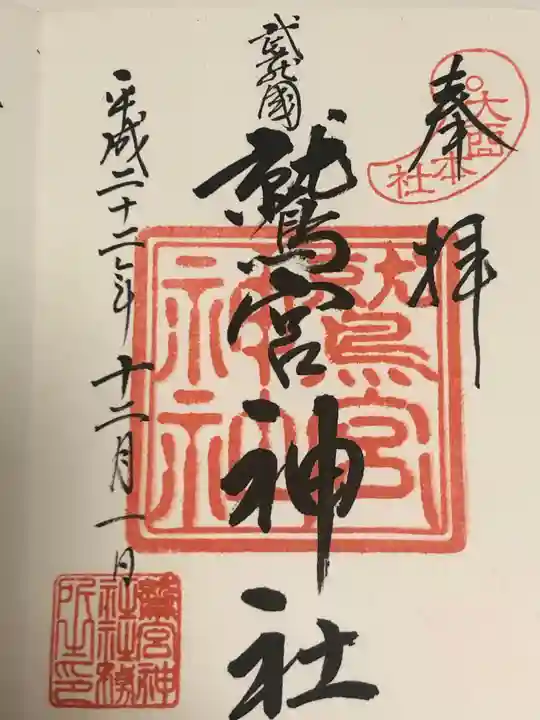 奉拝
大酉本社
武蔵國
鷲宮神社
鷲宮神社
平成二十二年十二月一日
鷲宮神
社社務
所之印